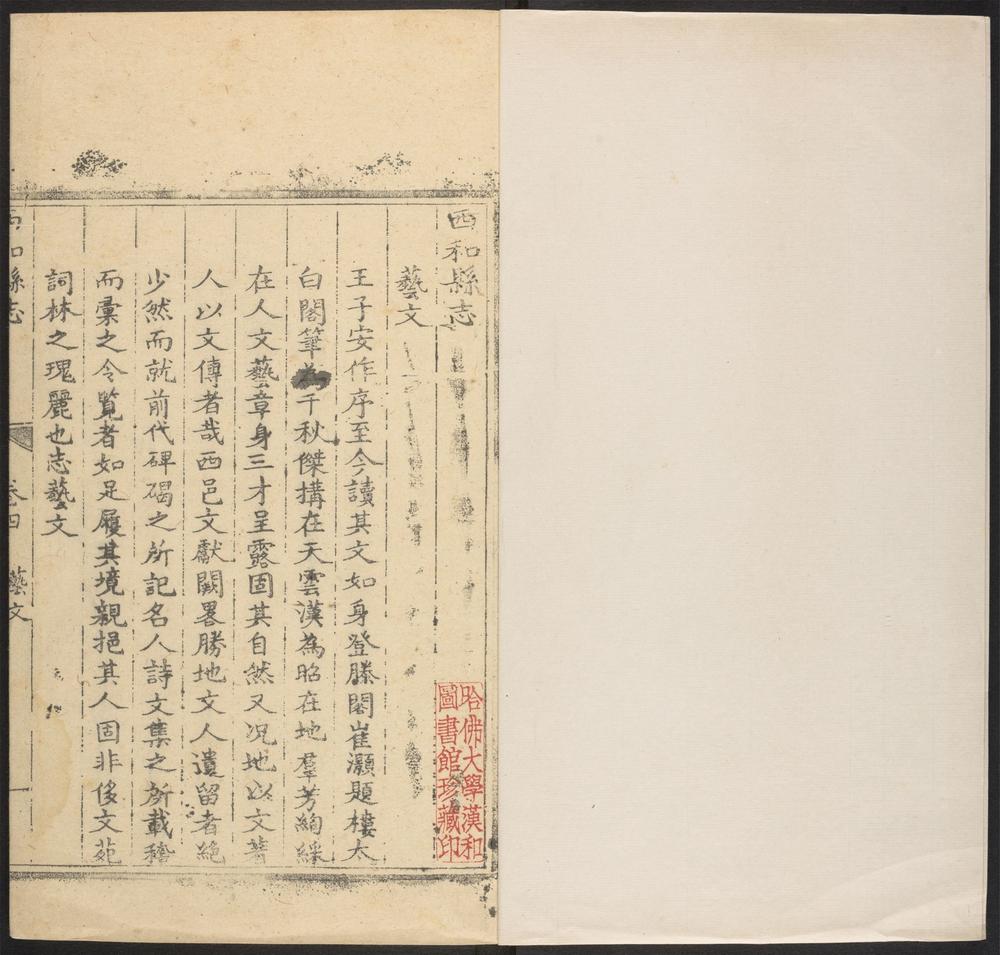 西和縣志
藝文
王子安作序至今讀其文如身登滕閣崔灝題樓太
白閣筆為千秋傑搆在天雲漢為昭在地羣芳絢綵
在人文藝章身三才呈露固其自然又况地以文著
人以文傳者哉西邑文獻闕畧勝地文人遺留者絕
少然而就前代碑碣之所記名人詩文集之所載稽
而彙之令覧者如足履其境親挹其人固非侈文苑
詞林之瑰麗也志藝文
西和縣志 卷四 藝文 一
哈佛大學漢和
圖書館珍藏印